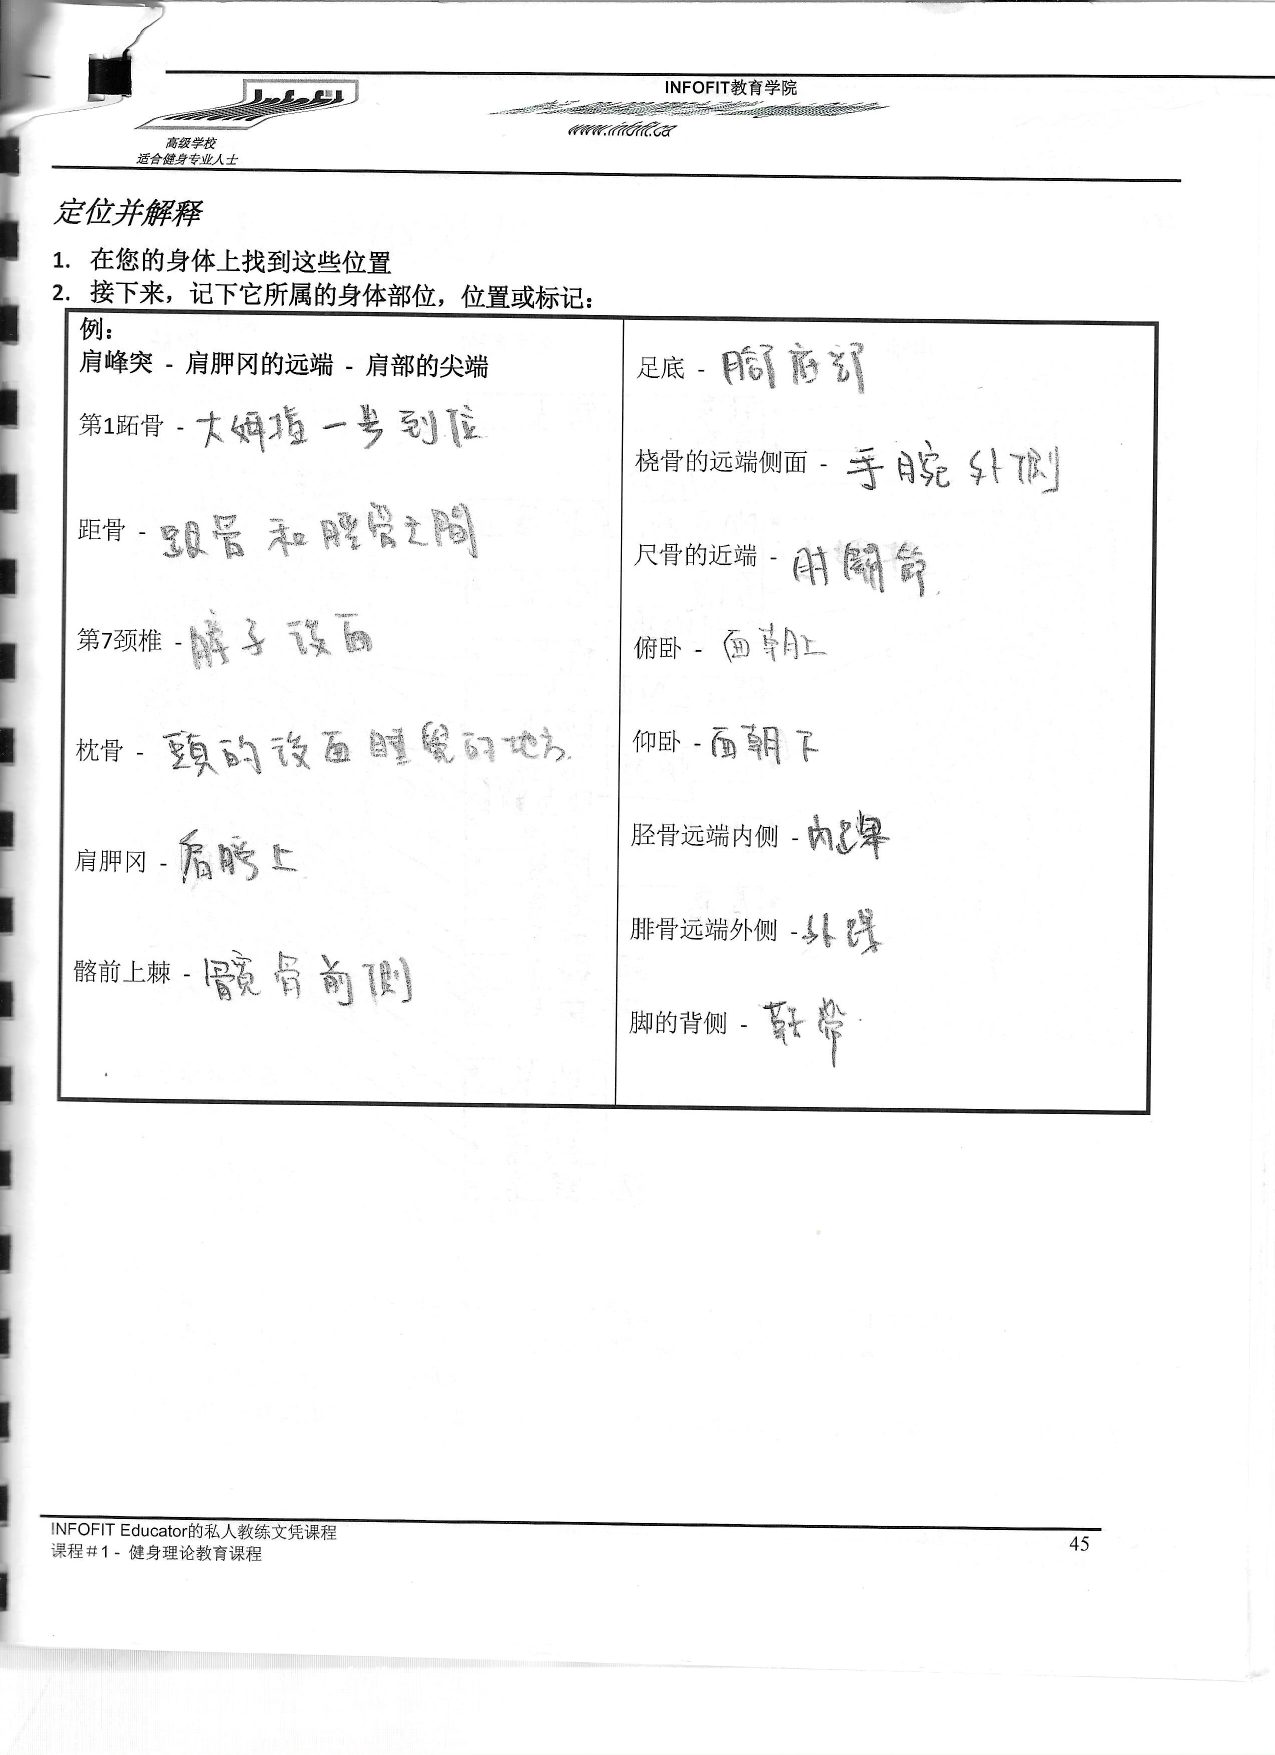 Infofit
INFOFIT教育学院
www.infofit.ca
高级学校
适合健身专业人士
定位并解释
1. 在您的身体上找到这些位置
2. 接下来，记下它所属的身体部位，位置或标记：
例：
肩峰突 - 肩胛冈的远端 - 肩部的尖端
第1跖骨 - 大姆指一号到位
距骨 - 跟骨和脛骨之間
第7颈椎 - 脖子後面
枕骨 - 頭的後面睡覺的地方.
肩胛冈 - 肩膀上
髂前上棘 - 髖骨前側
足底 - 腳底部
桡骨的远端侧面 - 手腕外側
尺骨的近端 - 肘關節
俯卧 - 面朝上
仰卧 - 面朝下
胫骨远端内侧 - 内踝
腓骨远端外侧 - 外踝
脚的背侧 - 鞋帶
INFOFIT Educator的私人教练文凭课程
课程＃1 - 健身理论教育课程
45